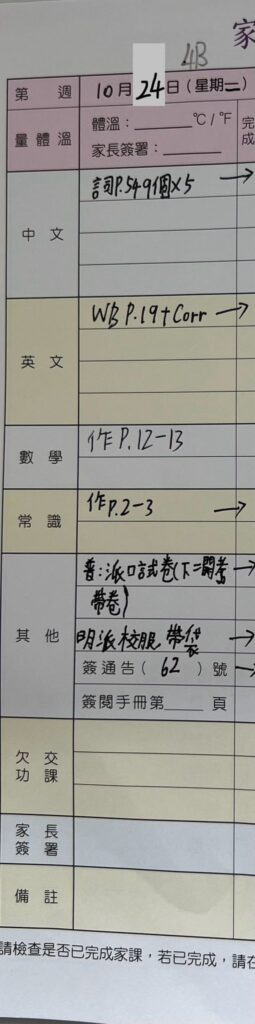 4B
家
第 週 10月24日(星期二)
完成
量體溫 體溫：______℃/℉
家長簽署：______
中文 詞P.54 9個×5 →
英文 WB P.19+Corr →
數學 作P.12-13
常識 作P.2-3 →
其他 普:派口試卷(下二開考 →
帶卷)
明派校服 帶袋 →
簽通告( 62 )號 →
簽閱手冊第____頁
欠交功課
家長簽署
備註
請檢查是否已完成家課，若已完成，請在